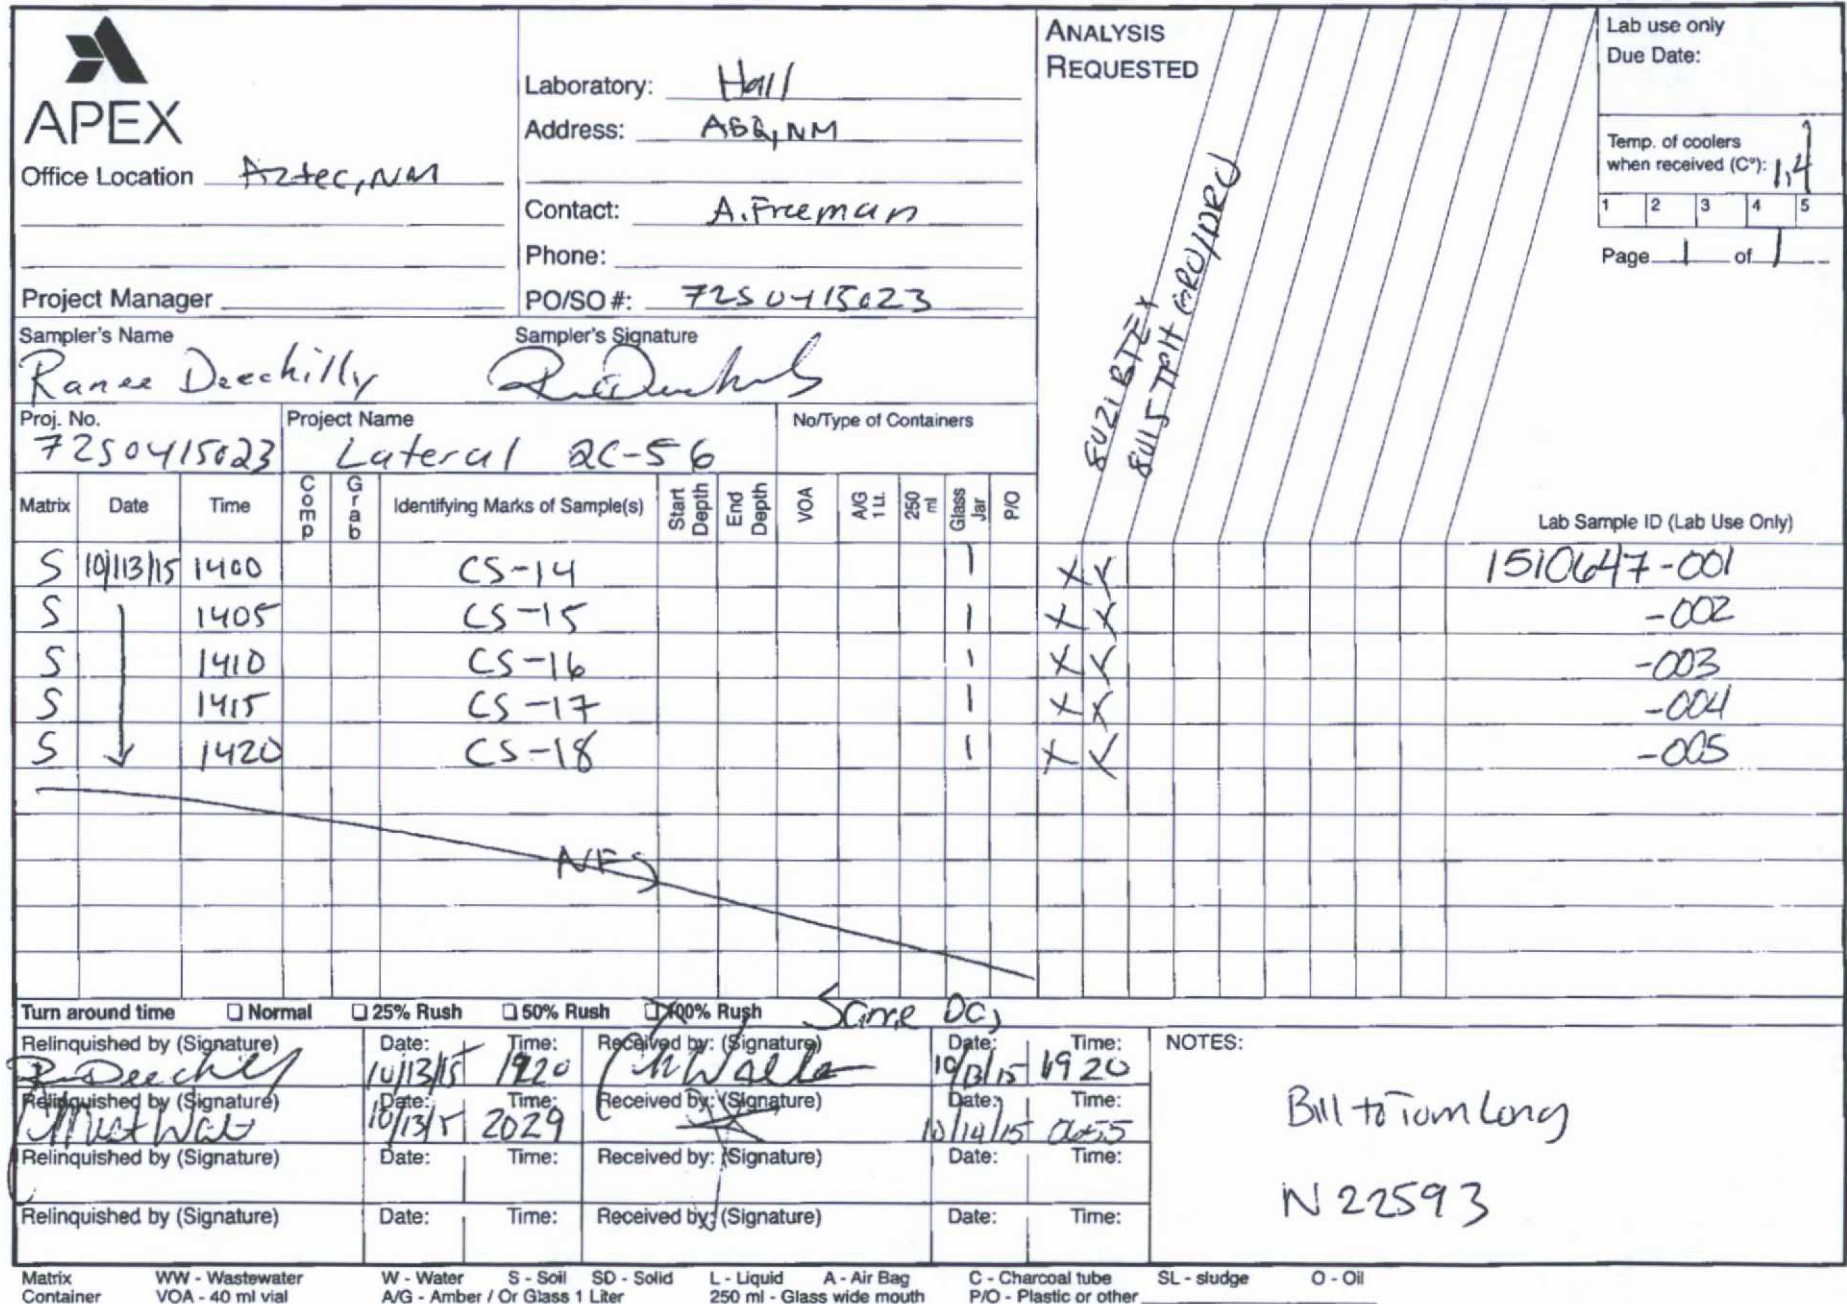 APEX
Office Location Aztec, NM
Project Manager
Laboratory: Hall
Address: ABQ, NM
Contact: A. Freeman
Phone:
PO/SO #: 7250415023
ANALYSIS
REQUESTED
8021 BTEX
8015 TPH GRO/DRO
Lab use only
Due Date:
Temp. of coolers
when received (C°): 1.4
1 2 3 4 5
Page 1 of 1
Sampler's Name Sampler's Signature
Ranee Deechilly
Proj. No. Project Name No/Type of Containers
7250415023 Lateral 2C-56
Matrix Date Time Comp Grab Identifying Marks of Sample(s) Start Depth End Depth VOA A/G 1 Lt. 250 ml Glass Jar P/O Lab Sample ID (Lab Use Only)
S 10/13/15 1400 CS-14 1 X X 1510647-001
S 1405 CS-15 1 X X -002
S 1410 CS-16 1 X X -003
S 1415 CS-17 1 X X -004
S 1420 CS-18 1 X X -005
NFS
Turn around time Normal 25% Rush 50% Rush 100% Rush Same Day
Relinquished by (Signature) Date: Time: Received by: (Signature) Date: Time:
10/13/15 1920 10/13/15 1920
Relinquished by (Signature) Date: Time: Received by: (Signature) Date: Time:
10/13/15 2029 10/14/15 0655
Relinquished by (Signature) Date: Time: Received by: (Signature) Date: Time:
Relinquished by (Signature) Date: Time: Received by: (Signature) Date: Time:
NOTES:
Bill to Tom Long
N22593
Matrix WW - Wastewater W - Water S - Soil SD - Solid L - Liquid A - Air Bag C - Charcoal tube SL - sludge O - Oil
Container VOA - 40 ml vial A/G - Amber / Or Glass 1 Liter 250 ml - Glass wide mouth P/O - Plastic or other